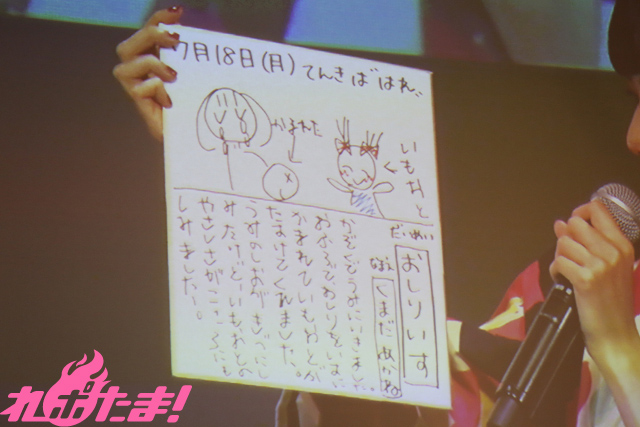 7月18日(月)てんきば"はれ"
かまれた
いもおと
だいめい
おしりいす
なまえ
くまだ
かぞくでうみにいきました。
おおぶでおしりをいすに
かまれていもおとが
たすけてくれました。
うみのしおがきずにし
みたけど、いもおとの
やさしさがこころにも
しみました。
れポたま!